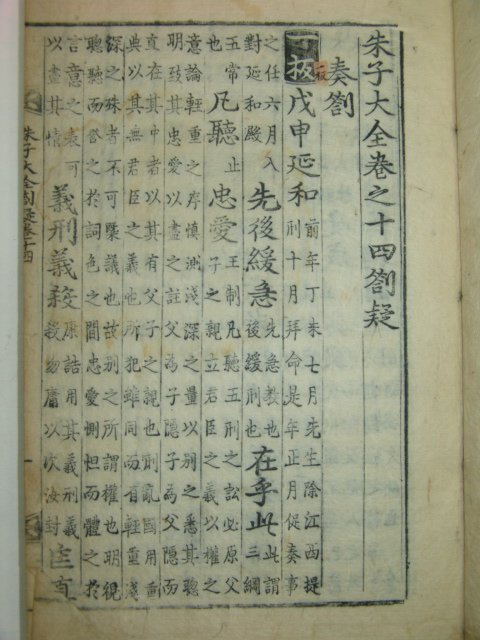 朱子大全卷之十四箚疑
奏箚
一板
板
戊申延和
前年丁未七月先生除江西提
刑十月拜命是年正月促奏事
之任六月入
對延和殿
先後緩急
先急教也
後緩刑也
在乎此
此謂
三綱
五常
也
凡聽止忠愛
王制凡聽五刑之訟必原父
子之親立君臣之義以權之
意論輕重之序慎測淺深之量以別之悉其聰
明致其忠愛以盡之註父爲子隱子爲父隱而
直在其中者以其有父子之親也刑亂國用重
典以其無君臣之義也所犯雖同而有輕重淺
深之殊者不可槩議也故別之所謂權也明視
聰聽而察之於詞色之間忠愛惻怛而體之於
言意之表可
以盡其情
義刑義殺
康誥用其義刑義
殺勿庸以次汝封
匡直
朱子大全箚疑卷十四
一